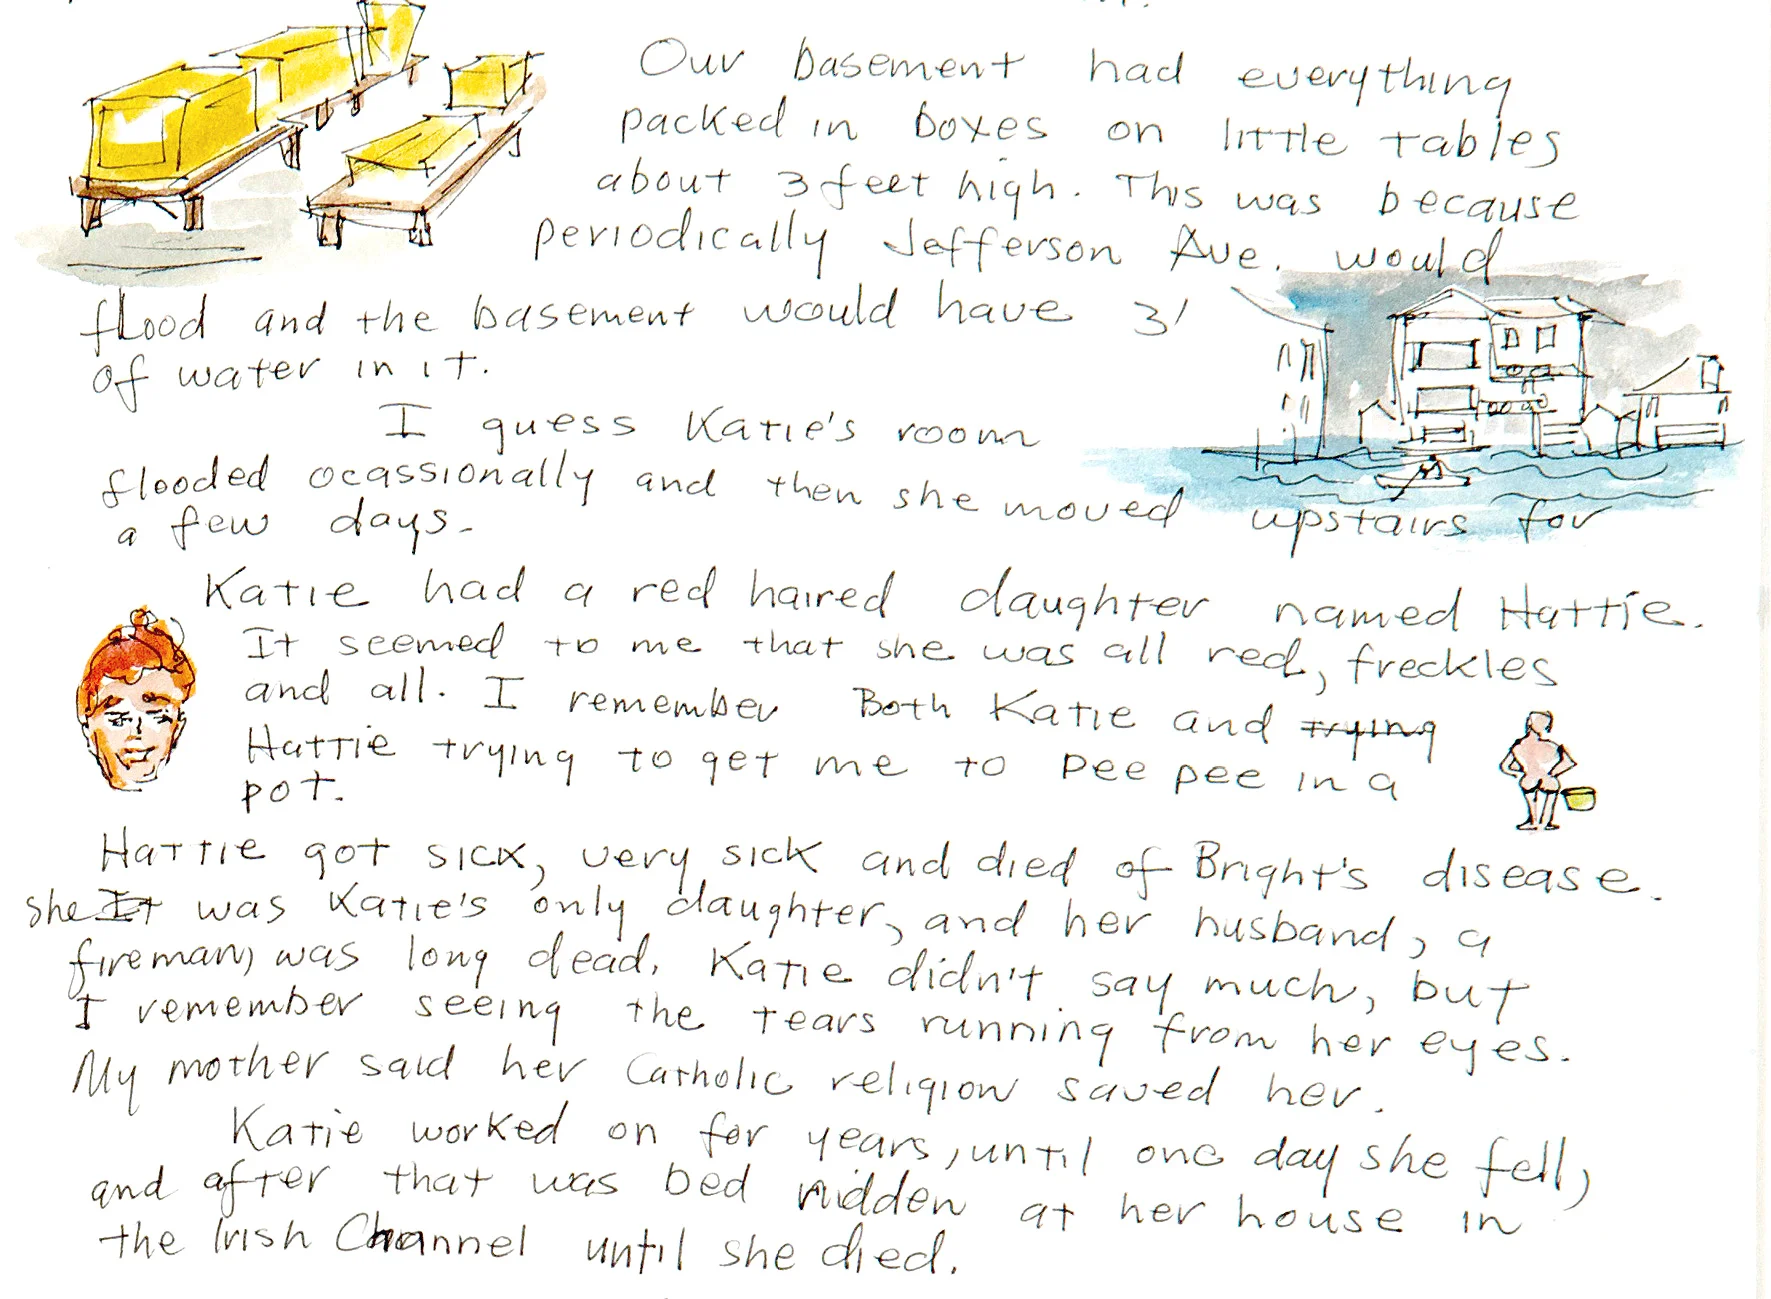 Our basement had everything
packed in boxes on little tables
about 3 feet high. This was because
periodically Jefferson Ave. would
flood and the basement would have 3'
of water in it.
I guess Katie's room
flooded ocassionally and then she moved upstairs for
a few days.
Katie had a red haired daughter named Hattie.
It seemed to me that she was all red, freckles
and all. I remember Both Katie and trying
Hattie trying to get me to pee pee in a
pot.
Hattie got sick, very sick and died of Bright's disease.
she It was Katie's only daughter, and her husband, a
fireman, was long dead. Katie didn't say much, but
I remember seeing the tears running from her eyes.
My mother said her Catholic religion saved her.
Katie worked on for years, until one day she fell,
and after that was bed ridden at her house in
the Irish Channel until she died.